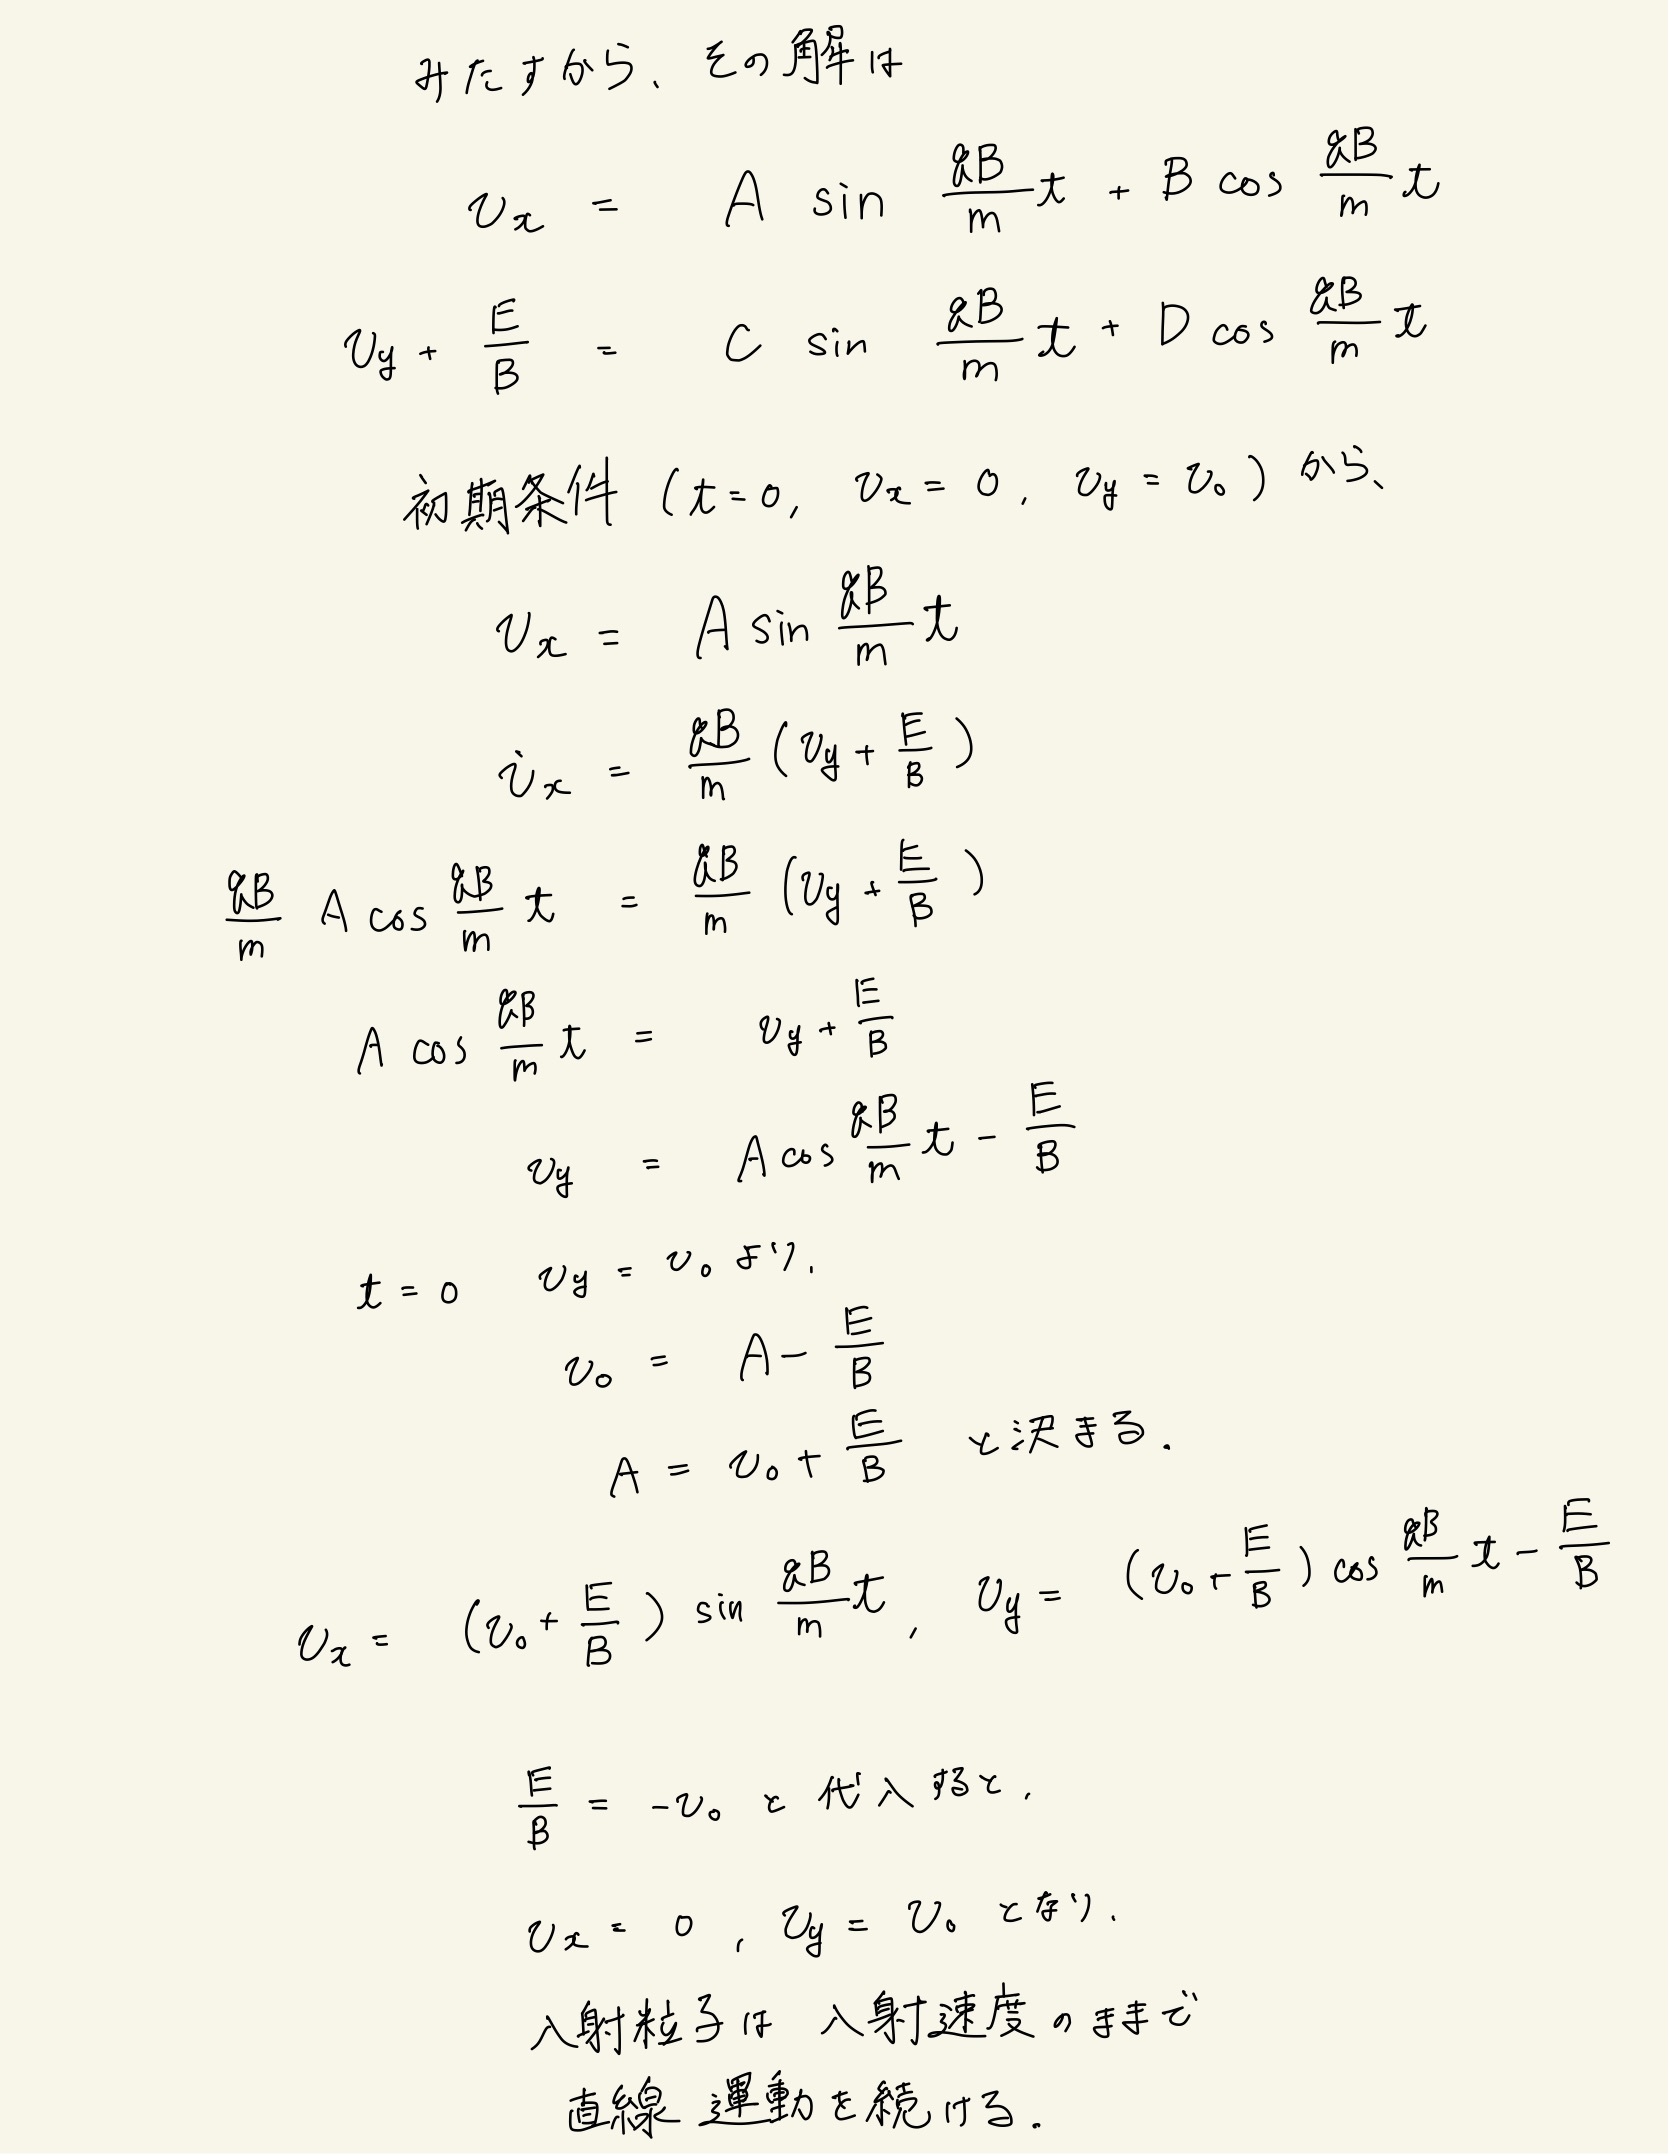 みたすから、その解は
v_x = A sin qB/m t + B cos qB/m t
v_y + E/B = C sin qB/m t + D cos qB/m t
初期条件 (t=0, v_x = 0, v_y = v_0) から、
v_x = A sin qB/m t
v̇_x = qB/m (v_y + E/B)
qB/m A cos qB/m t = qB/m (v_y + E/B)
A cos qB/m t = v_y + E/B
v_y = A cos qB/m t - E/B
t = 0 v_y = v_0 より,
v_0 = A - E/B
A = v_0 + E/B と決まる.
v_x = (v_0 + E/B) sin qB/m t, v_y = (v_0 + E/B) cos qB/m t - E/B
E/B = -v_0 と代入すると,
v_x = 0, v_y = v_0 となり,
入射粒子は 入射速度のままで
直線運動を続ける.